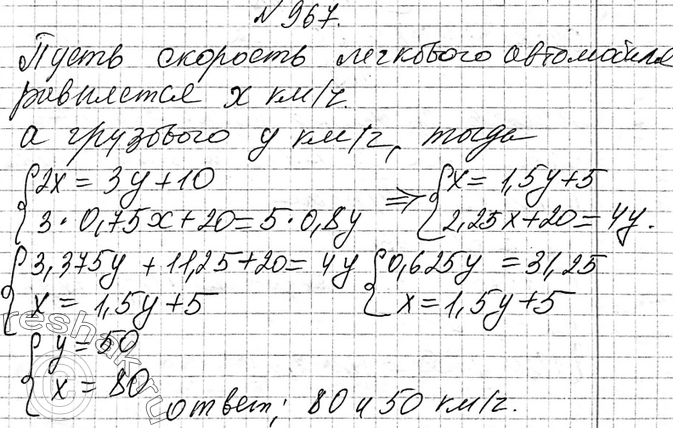 №967.
Пусть скорость легкового автомобиля
равняется x км/ч
а грузового y км/ч, тогда
{2x = 3y + 10 {x = 1,5y + 5
{3 · 0,75x + 20 = 5 · 0,8y ⇒ {2,25x + 20 = 4y.
{3,375y + 11,25 + 20 = 4y {0,625y = 31,25
{x = 1,5y + 5 {x = 1,5y + 5
{y = 50
{x = 80
ответ; 80 и 50 км/ч.
reshak.ru